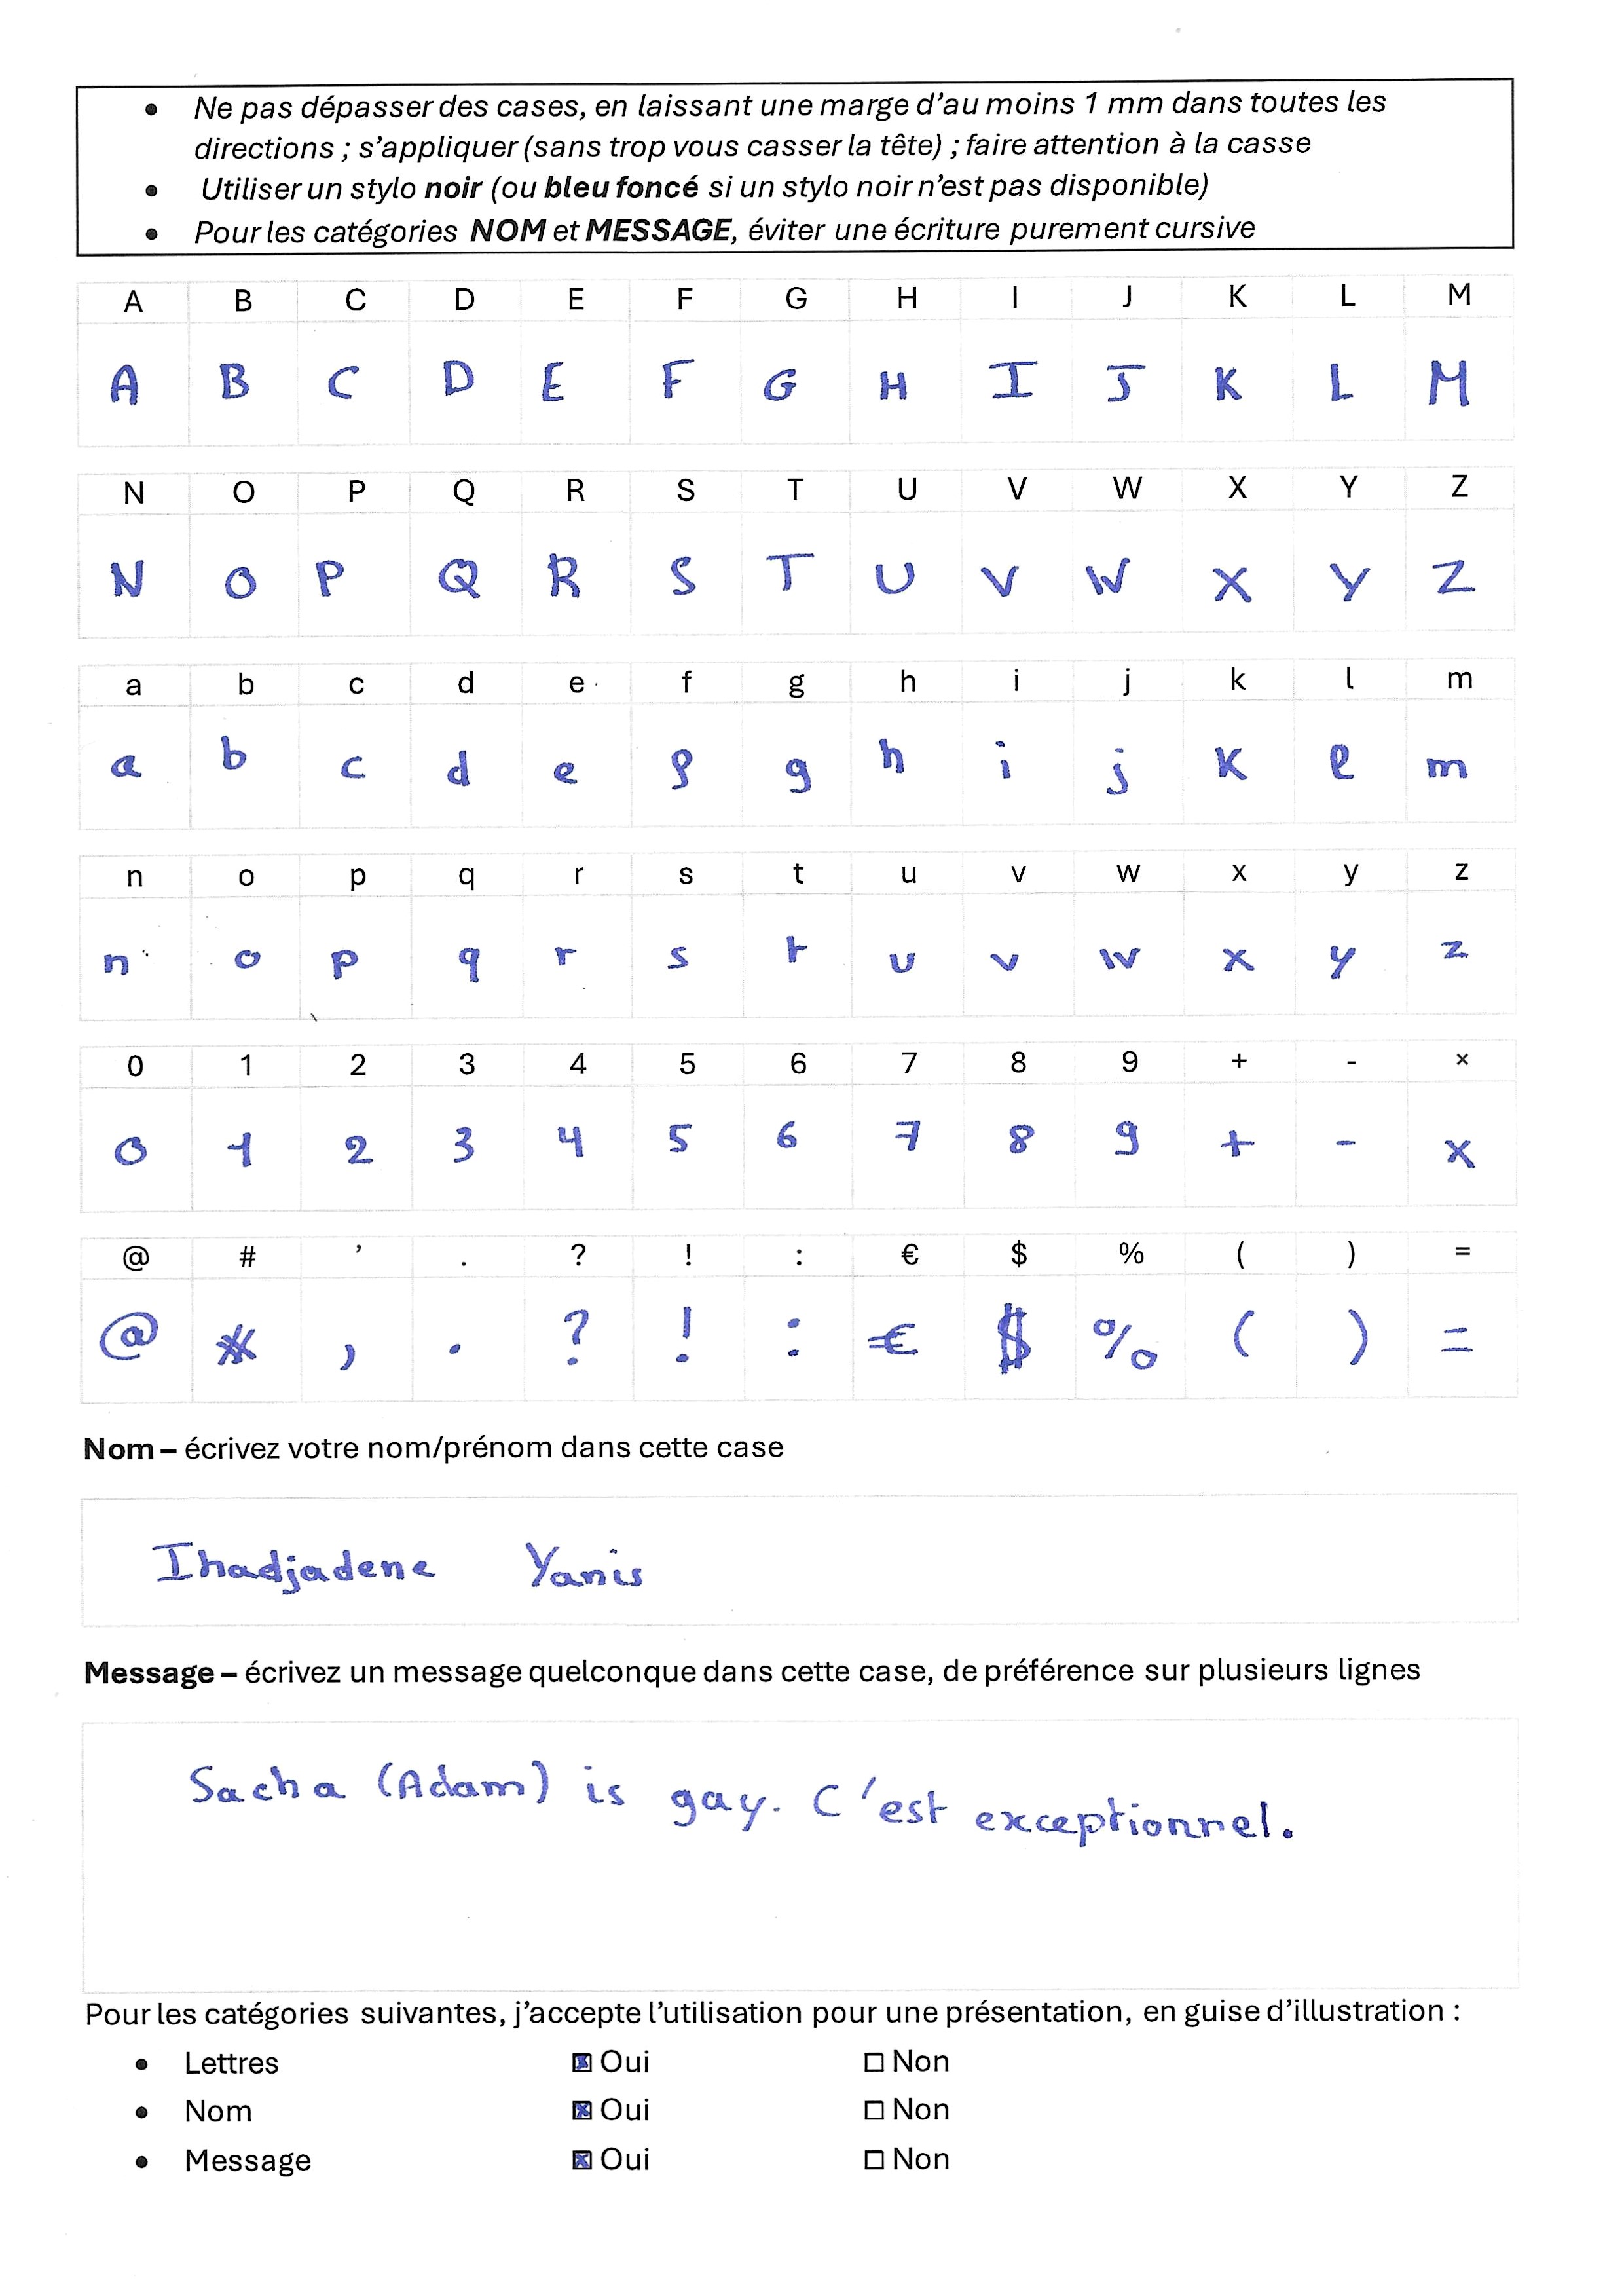 • Ne pas dépasser des cases, en laissant une marge d'au moins 1 mm dans toutes les
directions ; s'appliquer (sans trop vous casser la tête) ; faire attention à la casse
• Utiliser un stylo noir (ou bleu foncé si un stylo noir n'est pas disponible)
• Pour les catégories NOM et MESSAGE, éviter une écriture purement cursive
A B C D E F G H I J K L M
A B C D E F G H I J K L M
N O P Q R S T U V W X Y Z
N O P Q R S T U V W X Y Z
a b c d e f g h i j k l m
a b c d e f g h i j k l m
n o p q r s t u v w x y z
n o p q r s t u v w x y z
0 1 2 3 4 5 6 7 8 9 + - ×
0 1 2 3 4 5 6 7 8 9 + - ×
@ # ’ . ? ! : € $ % ( ) =
@ # , . ? ! : € $ % ( ) =
Nom – écrivez votre nom/prénom dans cette case
Ihadjadene Yanis
Message – écrivez un message quelconque dans cette case, de préférence sur plusieurs lignes
Sacha (Adam) is gay. C'est exceptionnel.
Pour les catégories suivantes, j'accepte l'utilisation pour une présentation, en guise d'illustration :
• Lettres ☒ Oui ☐ Non
• Nom ☒ Oui ☐ Non
• Message ☒ Oui ☐ Non